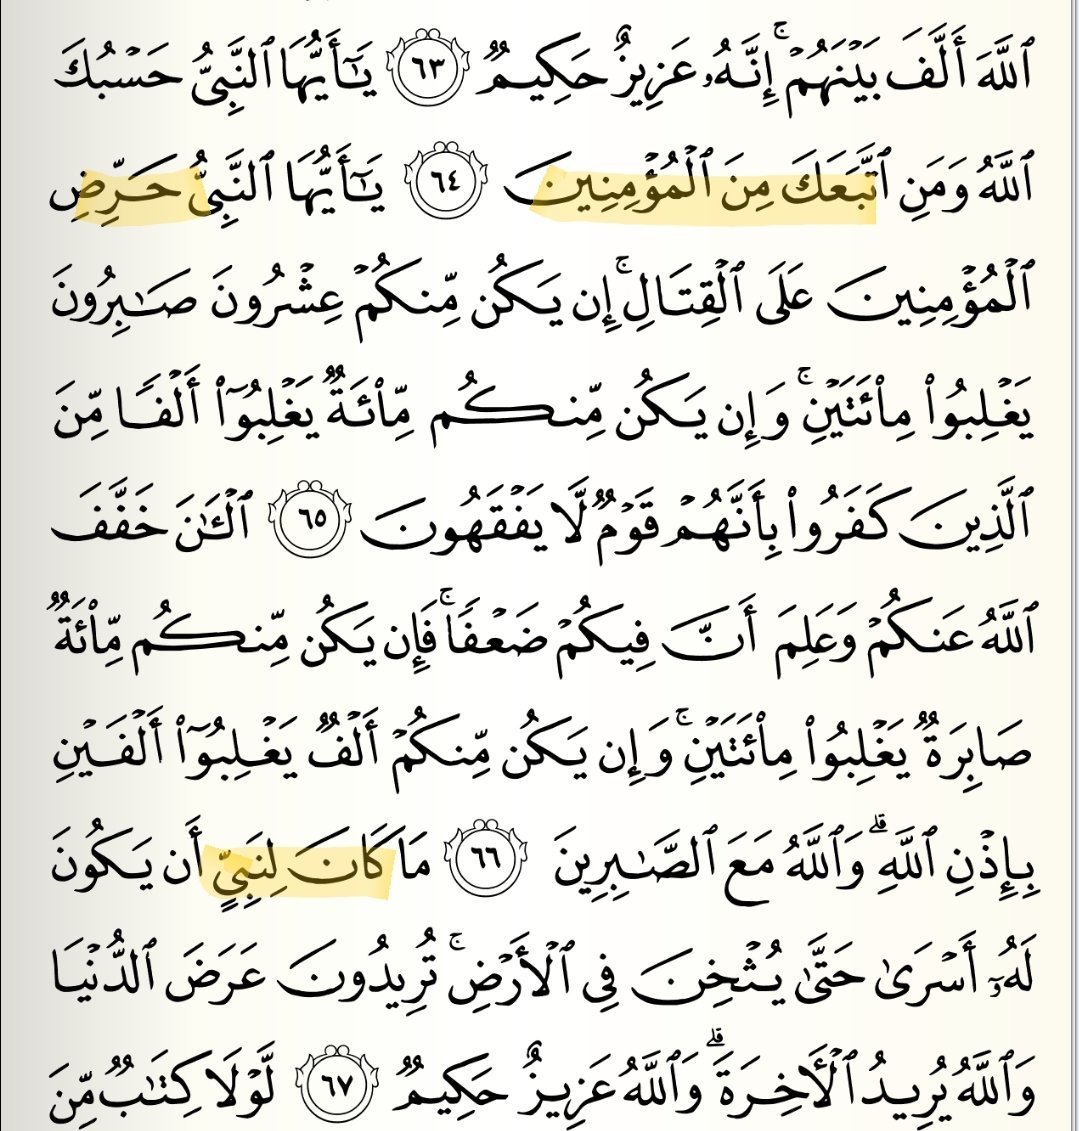 ٱللَّهَ أَلَّفَ بَيۡنَهُمۡۚ إِنَّهُۥ عَزِيزٌ حَكِيمٞ ٦٣ يَٰٓأَيُّهَا ٱلنَّبِيُّ حَسۡبُكَ
ٱللَّهُ وَمَنِ ٱتَّبَعَكَ مِنَ ٱلۡمُؤۡمِنِينَ ٦٤ يَٰٓأَيُّهَا ٱلنَّبِيُّ حَرِّضِ
ٱلۡمُؤۡمِنِينَ عَلَى ٱلۡقِتَالِۚ إِن يَكُن مِّنكُمۡ عِشۡرُونَ صَٰبِرُونَ
يَغۡلِبُواْ مِاْئَتَيۡنِۚ وَإِن يَكُن مِّنكُم مِّاْئَةٞ يَغۡلِبُوٓاْ أَلۡفٗا مِّنَ
ٱلَّذِينَ كَفَرُواْ بِأَنَّهُمۡ قَوۡمٞ لَّا يَفۡقَهُونَ ٦٥ ٱلۡـَٰٔنَ خَفَّفَ
ٱللَّهُ عَنكُمۡ وَعَلِمَ أَنَّ فِيكُمۡ ضَعۡفٗاۚ فَإِن يَكُن مِّنكُم مِّاْئَةٞ
صَابِرَةٞ يَغۡلِبُواْ مِاْئَتَيۡنِۚ وَإِن يَكُن مِّنكُمۡ أَلۡفٞ يَغۡلِبُوٓاْ أَلۡفَيۡنِ
بِإِذۡنِ ٱللَّهِۗ وَٱللَّهُ مَعَ ٱلصَّٰبِرِينَ ٦٦ مَا كَانَ لِنَبِيٍّ أَن يَكُونَ
لَهُۥٓ أَسۡرَىٰ حَتَّىٰ يُثۡخِنَ فِي ٱلۡأَرۡضِۚ تُرِيدُونَ عَرَضَ ٱلدُّنۡيَا
وَٱللَّهُ يُرِيدُ ٱلۡأٓخِرَةَۗ وَٱللَّهُ عَزِيزٌ حَكِيمٞ ٦٧ لَّوۡلَا كِتَٰبٞ مِّنَ